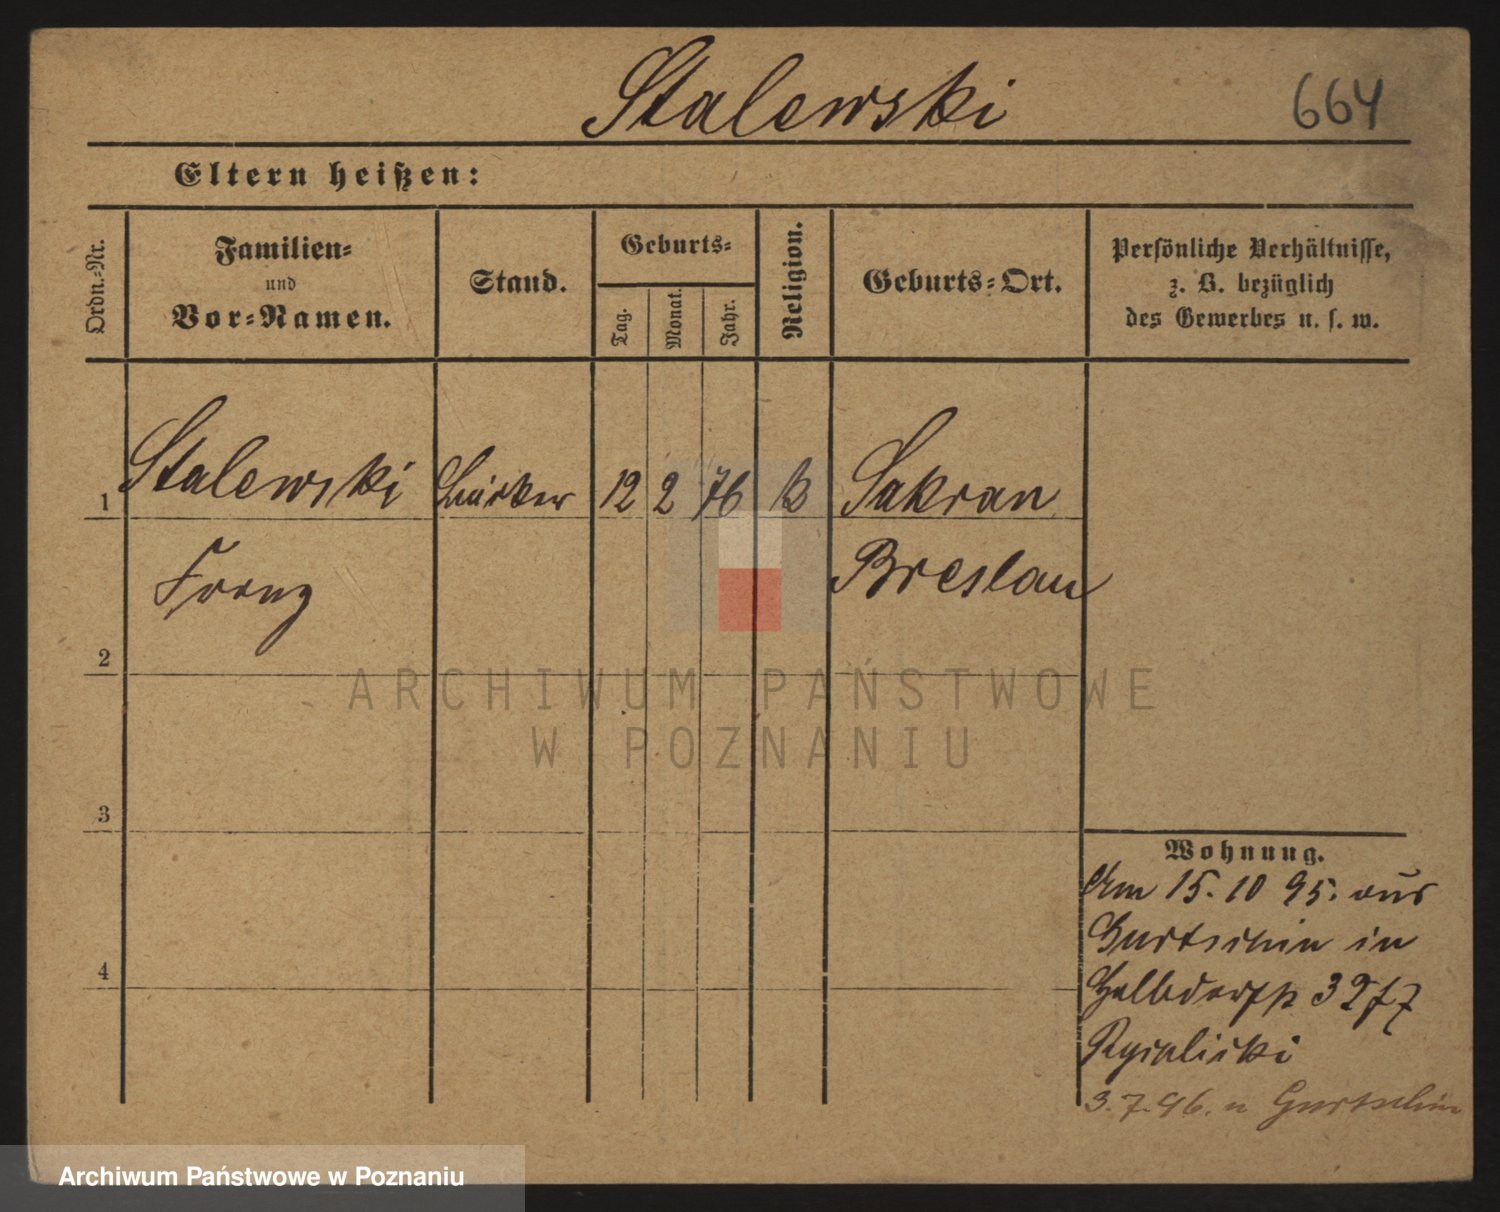 Stalewski 664
Eltern heißen:
Ordn.-Nr.
Familien-
und
Vor-Namen.
Stand.
Geburts-
Tag.
Monat.
Jahr.
Religion.
Geburts-Ort.
Persönliche Verhältnisse,
z. B. bezüglich
des Gewerbes u. s. w.
1 Stalewski 12 2 76 k Sakrau
Franz Breslau
2
3
4
Wohnung.
Am 15.10 95. aus
Gurtschin in
Halbdorfstr 32
3.7.96. n Gurtschin
ARCHIWUM PAŃSTWOWE
W POZNANIU
Archiwum Państwowe w Poznaniu